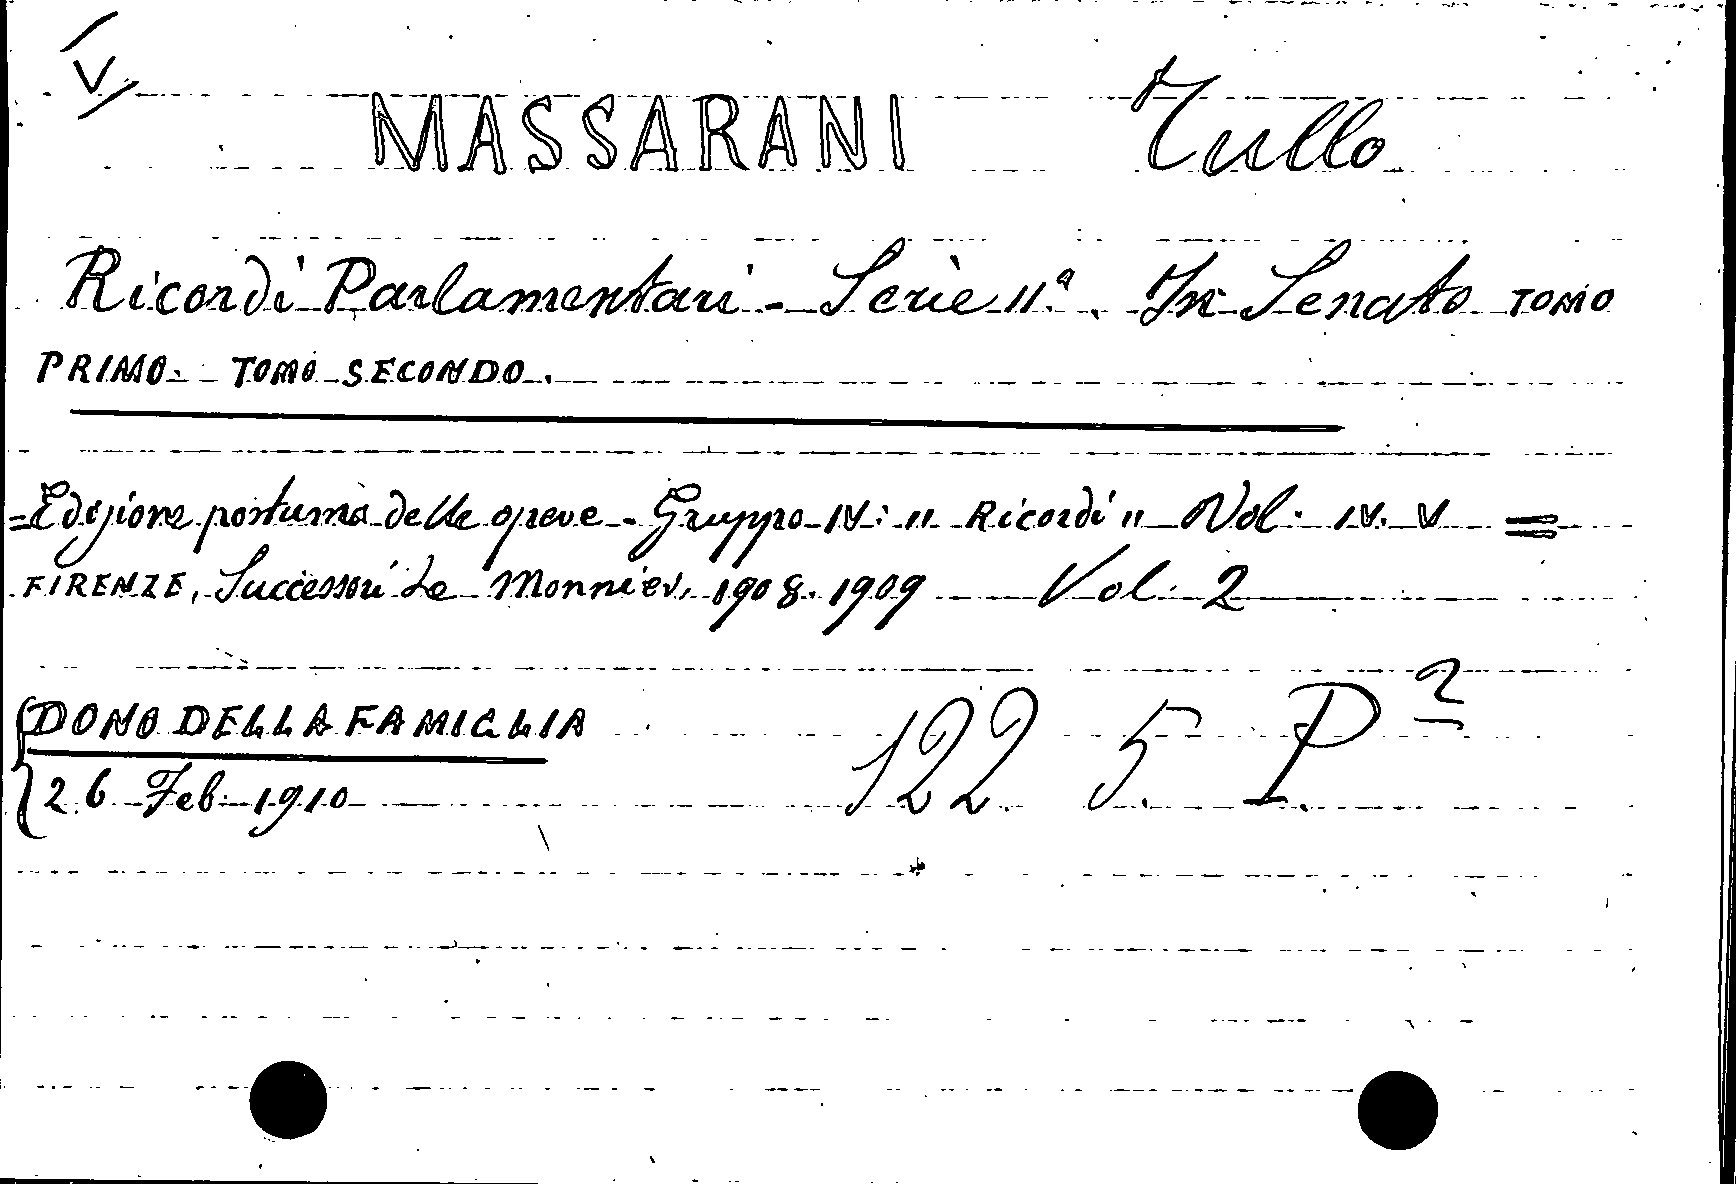 V
MASSARANI Tullo
Ricordi Parlamentari - Serie IIa. In Senato TOMO
PRIMO. TOMO SECONDO.
= Edizione postuma delle opere - Gruppo IV: " Ricordi " Vol. IV. V =
FIRENZE, Successori Le Monnier, 1908. 1909 Vol. 2
DONO DELLA FAMIGLIA
26 Feb. 1910 122. 5. P.2